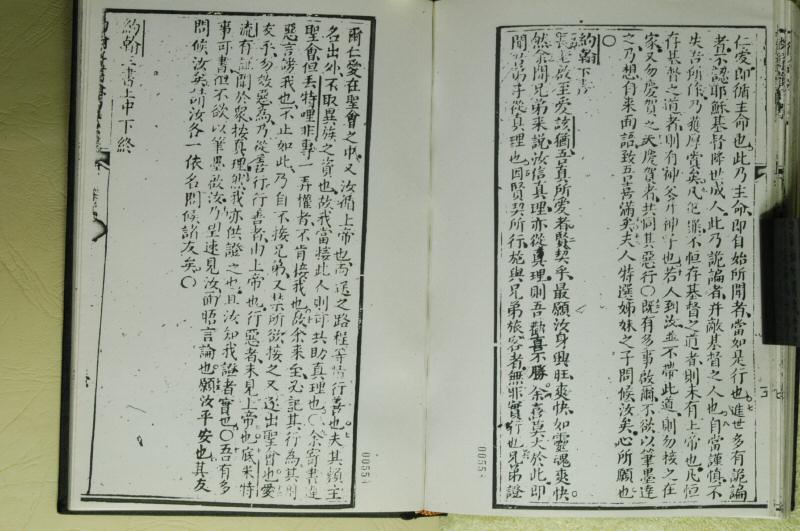 仁愛即循主命也此乃主命即自始所聞者當如是行也進世多有詭騙
者不認耶穌基督降世成人此乃詭騙者并敵基督之人也自當謹慎不
失吾所作乃獲厚賞矣凡犯罪不恒存基督之道者則未有上帝也凡恒
存基督之道者則有神父并神子也若人到汝並不帶此道則勿接之在
家又勿慶賀之夫慶賀者共同其惡行〇既有多事啟爾不欲以筆墨達
之乃想自来面語致吾喜滿矣夫人特選姊妹之子問候汝矣心所願也
〇
約翰下書
長老啟至愛該猶吾真所愛者賢契乎最願汝身興旺爽快如靈魂爽快
然余聞兄弟来說汝信真理亦從真理則吾歡喜不勝余喜莫大於此即
聞吾弟子從真理也因賢契所行施與兄弟旅客者無非實行也兄弟證
爾仁愛在聖會之中又汝循上帝也而送之路程等情行善也夫其賴主
名出外不取異族之資也故我當接此人則可共助真理也〇余寄書達
聖會但丟特哩非專一弄權者不肯接我也故余来至必記其行為其用
惡言謗我也不止如此乃自不接兄弟又禁所欲接之又逐出聖會也愛
友乎勿效惡為乃從善行行善者由上帝也行惡者未見上帝也底米特
流有証聞於眾按真理然我亦供證之也且汝知我證者實也〇吾有多
事可書但不欲以筆墨啟汝乃望速見汝面晤言論也願汝平安也其友
問候汝矣請汝各一依名問候諸友矣〇
約翰三書上中下終
00554